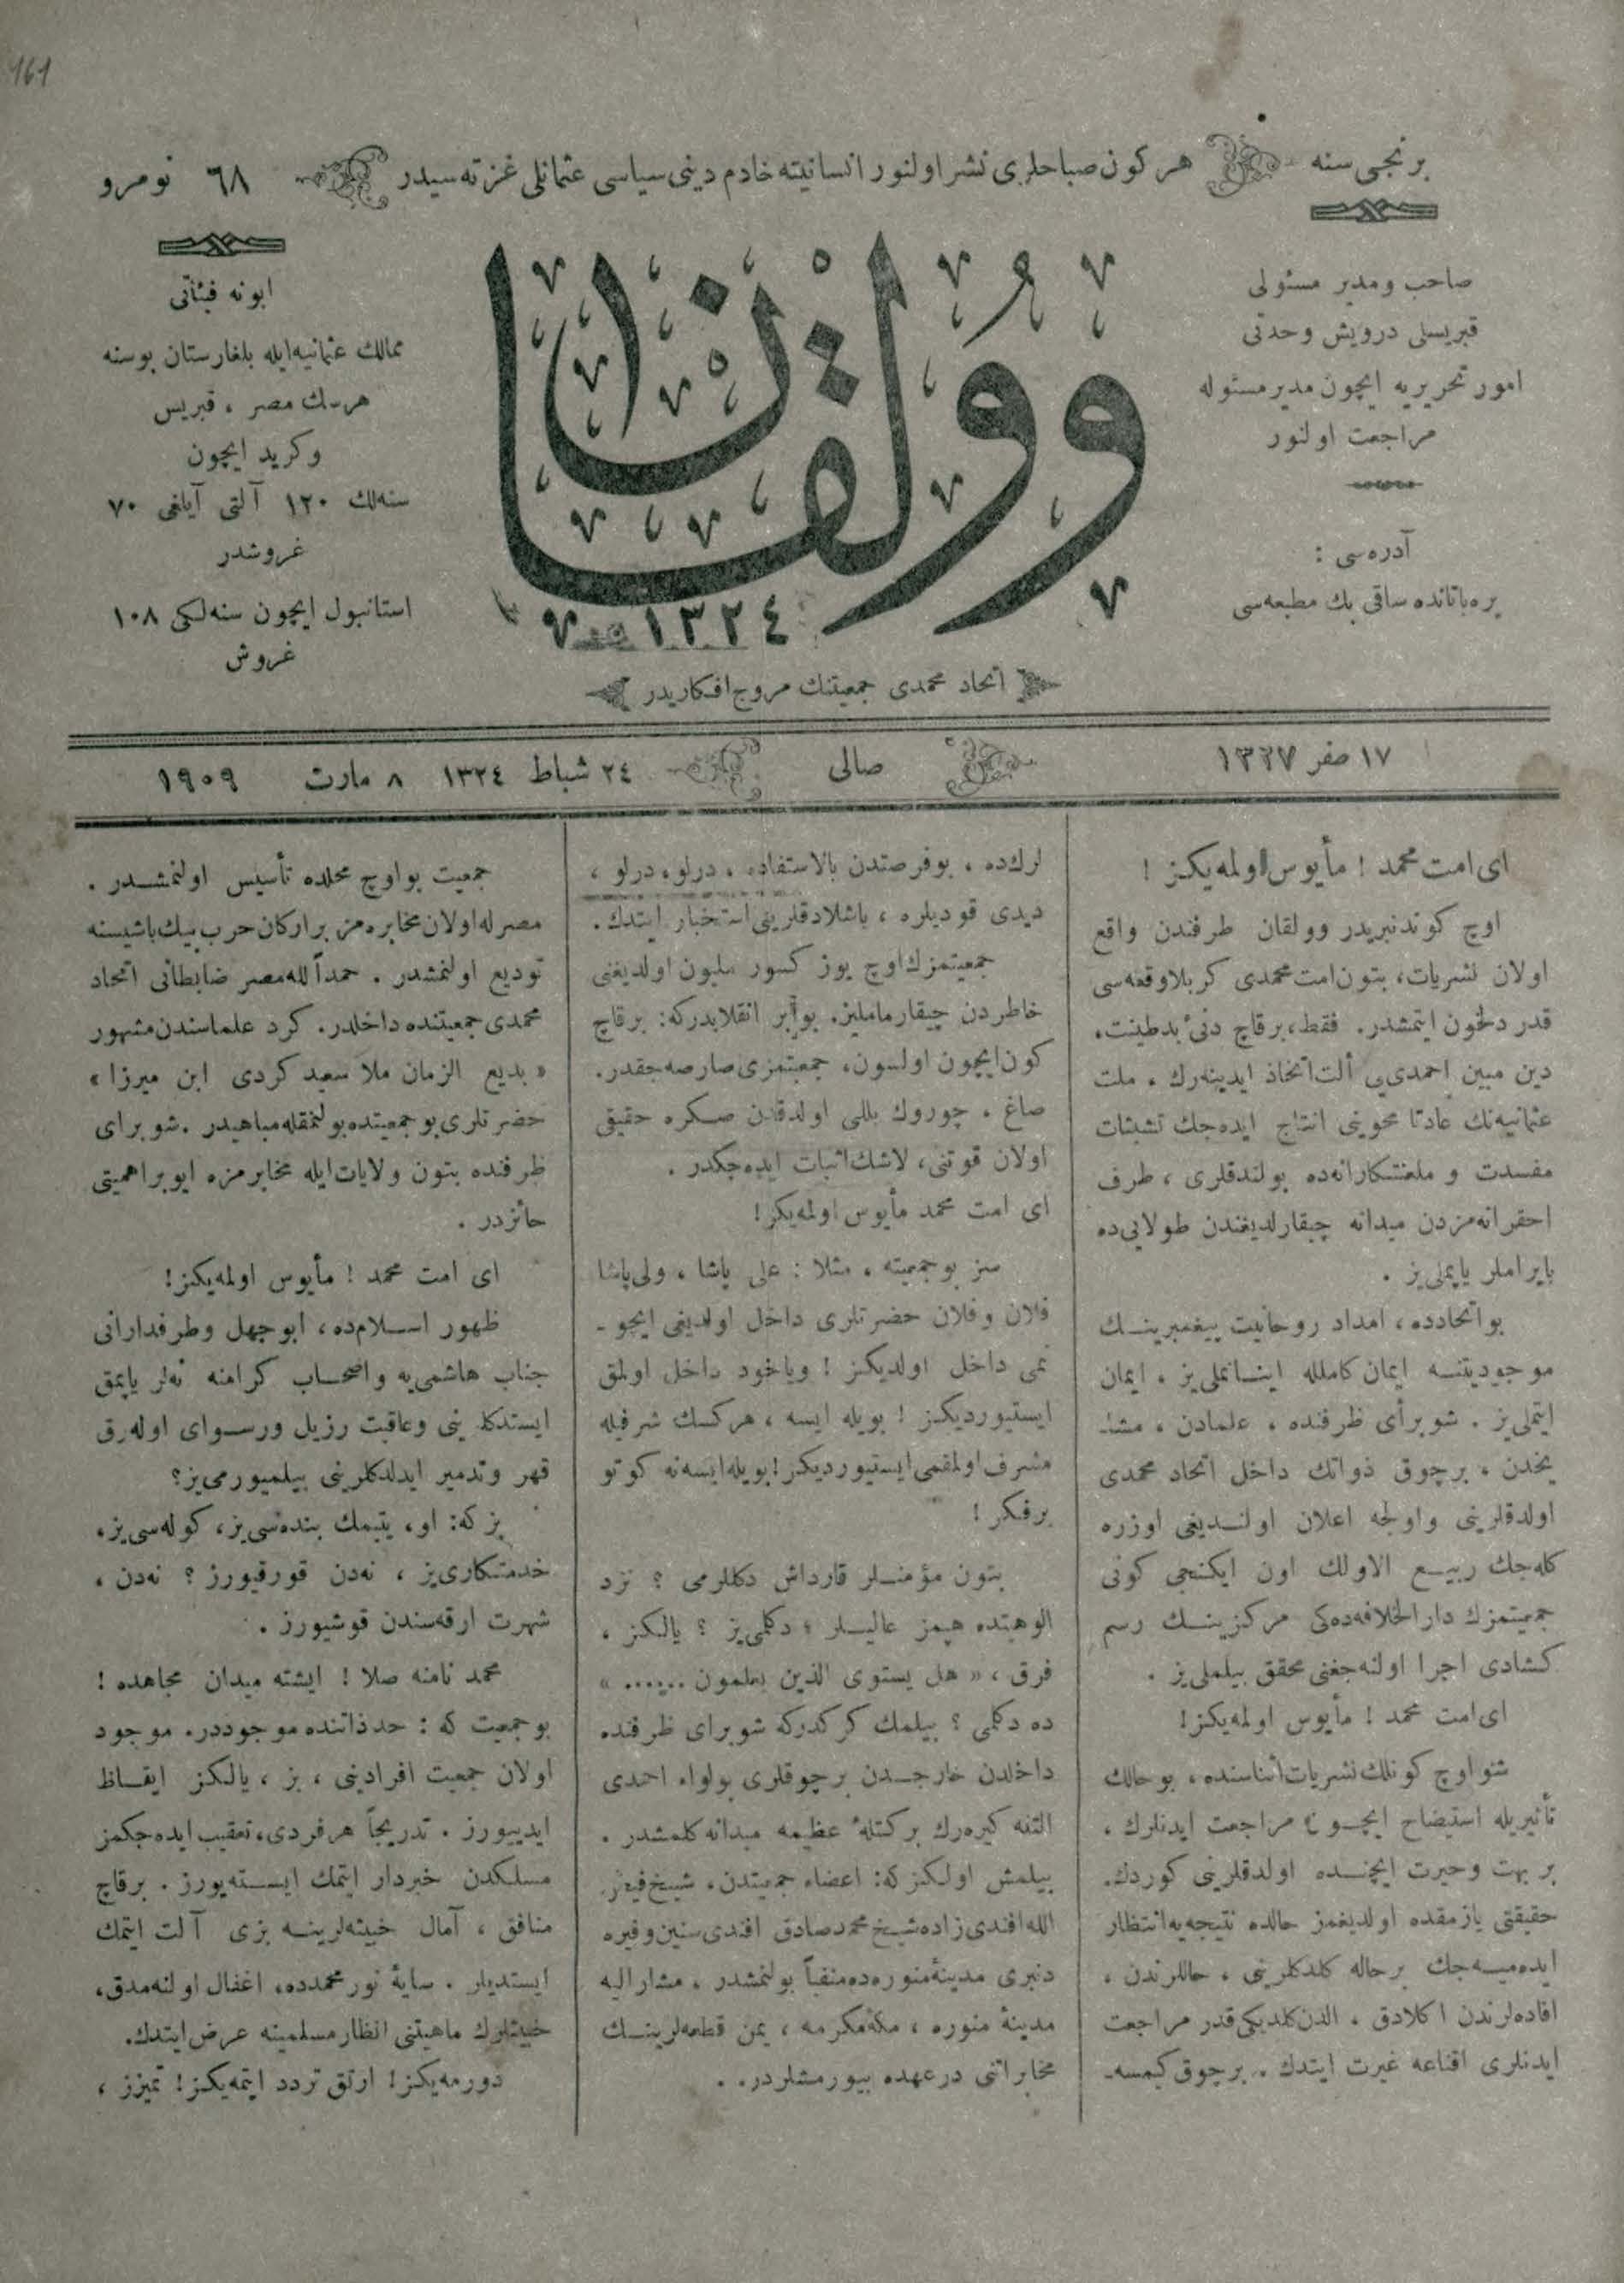 161
برنجی سنه
هر کون صباحلری نشر اولنور انسانیته خادم دینی سیاسی عثمانلی غزته سیدر
نومرو ٦٨
صاحب و مدیر مسئولی
قبریسلی درویش وحدتی
امور تحریریه ایچون مدیر مسئوله
مراجعت اولنور
آدره سی :
بره باتانده ساقی بك مطبعه سی
وولقان
١٣٢٤
اتحاد محمدی جمعیتنك مروج افکاریدر
ابونه فیئاتی
ممالك عثمانیه ایله بلغارستان بوسنه
هرسك مصر ، قبریس
وکرید ایچون
سنه لك ١٢٠ آلتی آیلغی ٧٠
غروشدر
استانبول ایچون سنه لکی ١٠٨
غروش
١٧ صفر ١٣٢٧
صالی
٢٤ شباط ١٣٢٤ ٨ مارت ١٩٠٩
ای امت محمد ! مأیوس اولمه یکز !
اوچ کوندنبریدر وولقان طرفندن واقع
اولان نشریات، بتون امت محمدی کربلا وقعه سی
قدر دلخون ایتمشدر. فقط، برقاچ دنیٔ بدطینت،
دین مبین احمدی یی آلت اتخاذ ایدینه رك ، ملت
عثمانیه نك عادتا محوینی انتاج ایده جك تشبثات
مفسدت و ملعنتکارانه ده بولندقلری ، طرف
احقرانه مزدن میدانه چیقارلدیغندن طولایی ده
بایراملر یاپملی یز .
بو اتحادده ، امداد روحانیت پیغمبرینـك
موجودیتنـه ایمان کاملله اینـانملی یز ، ایمان
ایتملی یز . شو برأی ظرفنده ، علمادن ، مشا-
یخدن ، برچوق ذواتك داخل اتحاد محمدی
اولدقلرینی واولجه اعلان اولنـدیغی اوزره
کله جك ربیـع الاولك اون ایکنجی کونی
جمعیتمزك دار الخلافه ده کی مرکزینـك رسم
کشادی اجرا اولنه جغنی محقق بیلملی یز .
ای امت محمد ! مأیوس اولمه یکز !
شو اوچ کونلك نشریات اثناسنده ، بو حالك
تأثیریله استیضاح ایچـون مراجعت ایدنلرك ،
بر بهت وحیرت ایچنـده اولدقلرینی کوردك.
حقیقتی یازمقده اولدیغمز حالده نتیجه یه انتظار
ایده میـه جك برحاله کلدکلرینی ، حاللرندن ،
افاده لرندن اکلادق ، الدن کلدیکی قدر مراجعت
ایدنلری اقناعه غیرت ایتدك . برچوق کیمسه-
لرك ده ، بو فرصتدن بالاستفاده ، درلو ، درلو ،
دیدی قودیلره ، باشلادقلرینی استخبار ایتدك.
جمعیتمزك اوچ یوز کسور ملیون اولدیغنی
خاطردن چیقارماملیز. بو بر انقلابدرکه: برقاچ
کون ایچون اولسون، جمعیتمزی صارصه جقدر.
صاغ ، چوروك بللی اولدقدن صکره حقیقی
اولان قوتنی، لاشك اثبات ایده جکدر .
ای امت محمد مأیوس اولمه یکز!
سز بو جمعیته ، مثلا : علی پاشا ، ولی پاشا
فلان وفلان حضرتلری داخل اولدیغی ایچو -
نمی داخل اولدیکز ! ویاخود داخل اولمق
ایستیوردیکز ! بویله ایسه ، هرکسك شرفیله
مشرف اولمقمی ایستیوردیکز! بویله ایسه نه کوتو
برفکر !
بتون مؤمنـلر قارداش دکللرمی ؟ نزد
الوهیتده هپمز عالیـلر ؛ دکلمی یز ؟ یالکز ،
فرق ، « هل یستوی الذین یعلمون ...... »
ده دکلمی ؟ بیلمك کرکدرکه شو برای ظرفنده
داخلدن خارجـدن برچوقلری بو لواء احمدی
التنه کیره رك بر کتلهٔ عظیمه میدانه کلمشدر .
بیلمش اولکز که: اعضاء جمعیتدن، شیخ فیض
الله افندی زاده شیخ محمد صادق افندی سنین وفیره
دنبری مدینهٔ منوره ده منفیاً بولنمشدر ، مشار الیه
مدینهٔ منوره ، مکهٔ مکرمه ، یمن قطعه لرینـك
مخابراتنی درعهده بیورمشلردر . .
جمعیت بو اوچ محلده تأسیس اولنمشـدر .
مصرله اولان مخابره مز بر ارکان حرب بیك باشیسنه
تودیع اولنمشدر . حمداً لله مصر ضابطانی اتحاد
محمدی جمعیتنده داخلدر. کرد علماسندن مشهور
« بدیع الزمان ملا سعید کردی ابن میرزا »
حضرتلری بو جمعیتده بولنمقله مباهیدر . شو برای
ظرفنده بتون ولایات ایله مخابرمزه ایو بر اهمیتی
حائزدر .
ای امت محمد ! مأیوس اولمه یکز!
ظهور اسـلام ده ، ابو جهل وطرفدارانی
جناب هاشمی یه واصحـاب کرامنه نه لر یاپمق
ایستدکلرینی وعاقبت رزیل ورسـوای اوله رق
قهر وتدمیر ایدلدکلرینی بیلمیورمی یز؟
بز که: او ، یتیمك بنده سی یز، کوله سی یز،
خدمتکاری یز ، نه دن قورقیورز ؟ نه دن ،
شهرت ارقه سندن قوشیورز .
محمد نامنه صلا ! ایشته میدان مجاهده !
بو جمعیت که : حد ذاتنده موجوددر. موجود
اولان جمعیت افرادینی ، بز ، یالکز ایقـاظ
ایدییورز . تدریجاً هر فردی ، تعقیب ایده جکمز
مسلکدن خبردار ایتمك ایسـته یورز . برقاچ
منافق ، آمال خبیثه لرینـه بزی آلت ایتمك
ایستدیلر . سایهٔ نور محمدده ، اغفال اولنه مدق،
خبیثلرك ماهیتنی انظار مسلمینه عرض ایتدك.
دورمه یکز! ارتق تردد ایتمه یکز! تمیزز ،